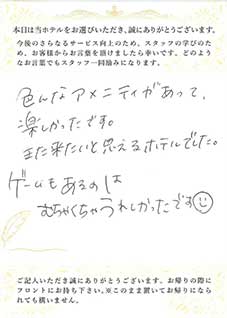 本日は当ホテルをお選びいただき、誠にありがとうございます。
今後のさらなるサービス向上のため、スタッフの学びのため、お客様からお言葉を頂けましたら幸いです。どのようなお言葉でもスタッフ一同励みになります。
色んなアメニティがあって、
楽しかったです。
また来たいと思えるホテルでした。
ゲームもあるのは
むちゃくちゃうれしかったです
ご記入いただき誠にありがとうございます。お帰りの際に
フロントにお持ち下さい。※このまま置いてお帰りになら
れても構いません。